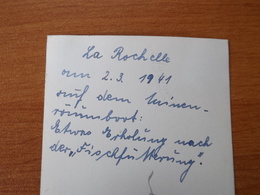 La Rochelle
am 2.3. 1941
auf dem Minen-
räumboot:
Etwas Erholung nach
der „Fischfütterung".